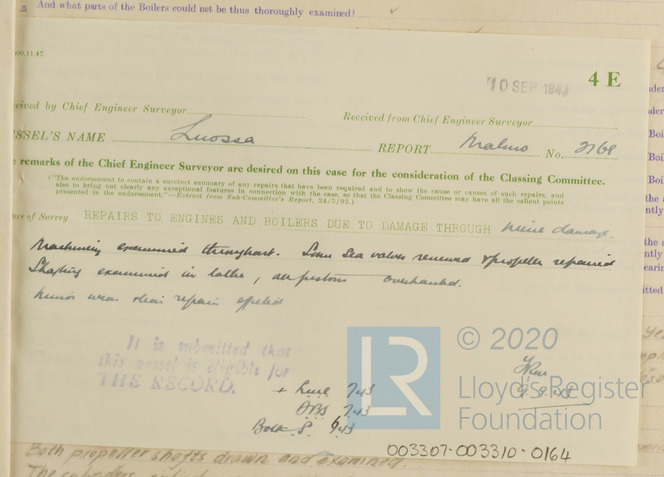 And what parts of the Boilers could not be thus thoroughly examined?
00,11,47.
10 SEP 1943
4 E
eived by Chief Engineer Surveyor
Received from Chief Engineer Surveyor
SSEL'S NAME Luossa REPORT Malmo No. 3768
e remarks of the Chief Engineer Surveyor are desired on this case for the consideration of the Classing Committee.
("The endorsement to contain a succinct summary of any repairs that have been required and to show the cause or causes of such repairs, and
also to bring out clearly any exceptional features in connection with the case, so that the Classing Committee may have all the salient points
presented in the endorsement."—Extract from Sub-Committee's Report, 24/5/92.)
ure of Survey REPAIRS TO ENGINES AND BOILERS DUE TO DAMAGE THROUGH mine damage.
Machinery examined throughout. Some Sea valves renewed & propeller repaired
Shafting examined in lathe, all pistons overhauled.
Minor wear & tear repairs effected
It is submitted that
this vessel is eligible for
THE RECORD.
+ LMC 7.43
DBS 7.43
Both S. 7.43
© 2020
LR
Lloyd's Register
Foundation
003307-003310-0164
Both propeller shafts drawn and examined.
The